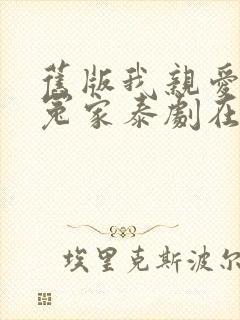 舊版我親愛
冤家泰劇在
埃里克斯波尔